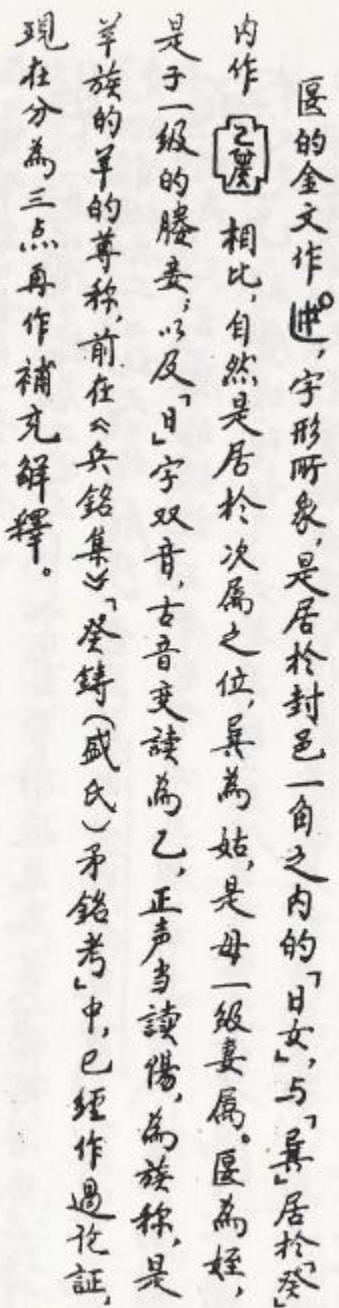 匽的金文作，字形所象，是居於封邑一角之内的「日女」，与「㠱」居於「癸」
内作 相比，自然是居於次属之位，㠱為姑，是母一级妻属。匽為姪，
是于一级的媵妾；以及「日」字双音，古音变讀為乙，正声当讀陽，為族称，是
羊族的羊的尊称，前在《兵銘集》「癸鋳（盛氏）矛銘考」中，已經作過论証，
现在分為三点再作補充解釋。